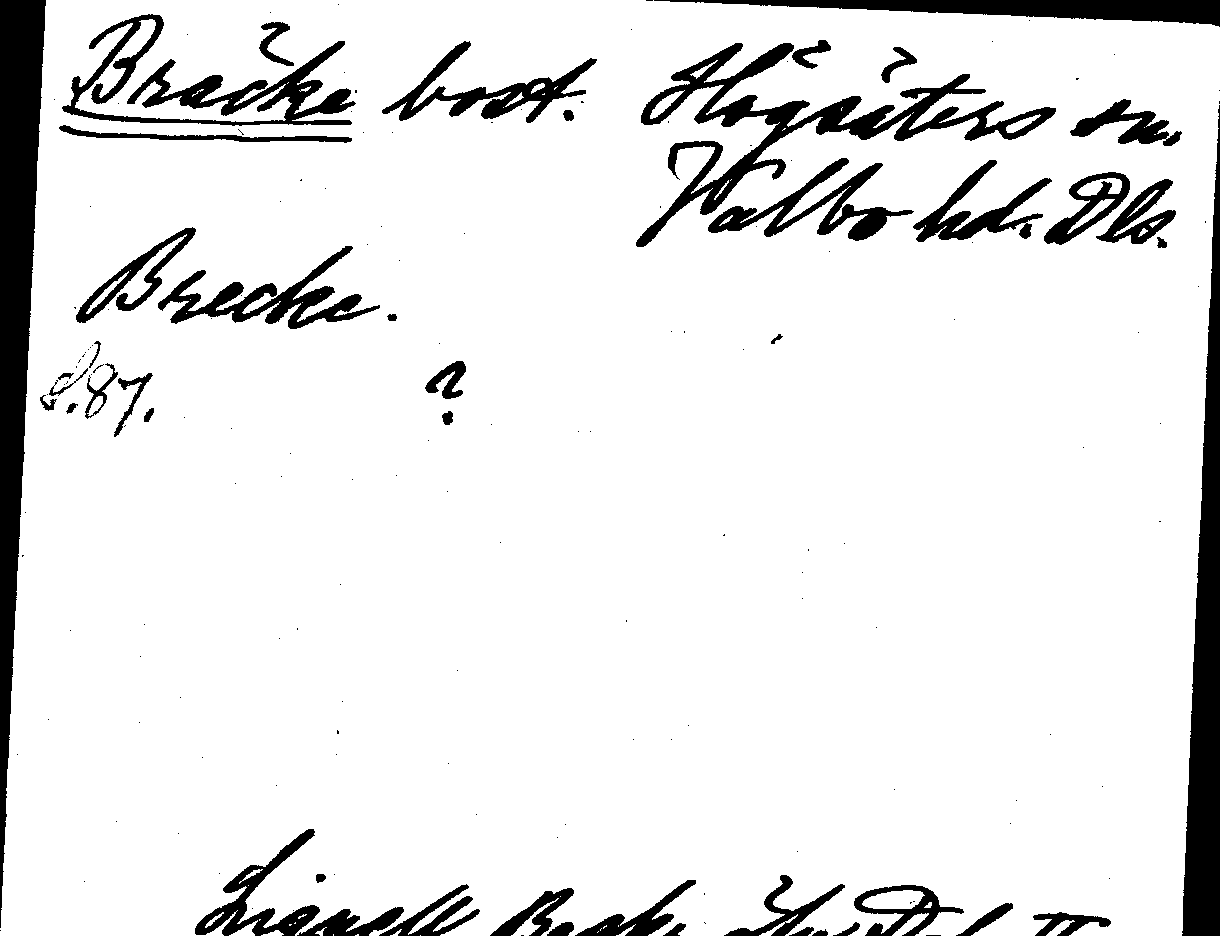 Bräcke bost. Högsäters sn.
Valbo hd. Dls.
Brecke.
S. 87. ?
Lignell Beskr. öfv. Dal II